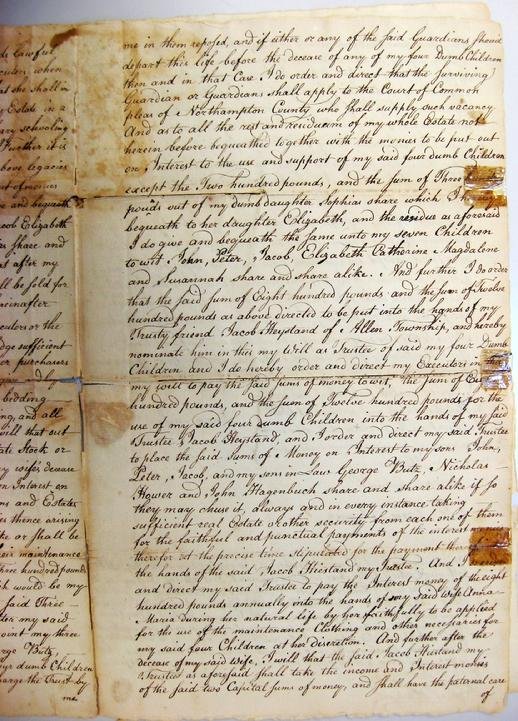 de Lawful
culars when
she shall in
y Estate in a
ary schooling
Further it is
above legacies
of monies
e and bequeath
Jacob Elizabeth
re share and
at after my
ll be sold for
hereinafter
ecutors or the
dge sufficient
or purchasers
bedding
ng, and all
will that out
ate Stock or
y wife's decease
on Interest on
ms and Estates
es thence arising
ke or shall be
heir maintenance
Three hundred pounds
which would be my
said Three
der my said
point my three
rge Butz,
our dumb Children
charge the Trust by
me
me in them reposed, and if either or any of the said Guardians should
depart this Life before the decease of any of my four Dumb Children
then and in that Case I do order and direct that the surviving
Guardian or Guardians shall apply to the Court of Common
pleas of Northampton County who shall supply such vacancy
And as to all the rest and residuum of my whole Estate not
herein before bequeathed together with the monies to be put out
on Interest to the use and support of my said four dumb Children
except the Two hundred pounds, and the sum of Three
pounds out of my dumb daughter Sophias share which I hereby
bequeath to her daughter Elizabeth, and the residue as aforesaid
I do give and bequeath the same unto my seven Children
to wit, John, Peter, Jacob, Elizabeth Catherine, Magdalene
and Susannah share and share alike. And further I do order
that the said sum of Eight hundred pounds and the sum of Twelve
hundred pounds as above directed to be put into the hands of my
Trusty friend Jacob Heystand of Allen Township, and hereby
nominate him in this my Will as Trustee of said my four Dumb
Children and I do hereby order and direct my Executors in this
my will to pay the said sums of money to wit, the sum of Eight
hundred pounds, and the sum of Twelve hundred pounds for the
use of my said four dumb Children into the hands of my said
Trustee Jacob Heystand, and I order and direct my said Trustee
to place the said Sums of Money on Interest to my sons John,
Peter, Jacob, and my sons in Law George Butz, Nicholas
Hower and John Hagenbuch share and share alike if so
they may chuse it, always and in every instance taking
sufficient real Estate or other security from each one of them
for the faithful and punctual payments of the interest
therefor at the precise time stipulated for the payment thereof
the hands of the said Jacob Hiestand my Trustee. And I
and direct my said Trustee to pay the Interest money of the eight
hundred pounds annually into the hands of my said Wife Anna
Maria during her natural life by her faithfully to be applied
for the use of the maintenance Clothing and other necessaries for
my said four Children at her discretion. And further after the
decease of my said Wife, I will that the said Jacob Hiestand my
Trustee as aforesaid shall take the income and Interest monies
of the said two Capital sums of money, and shall have the paternal care
of